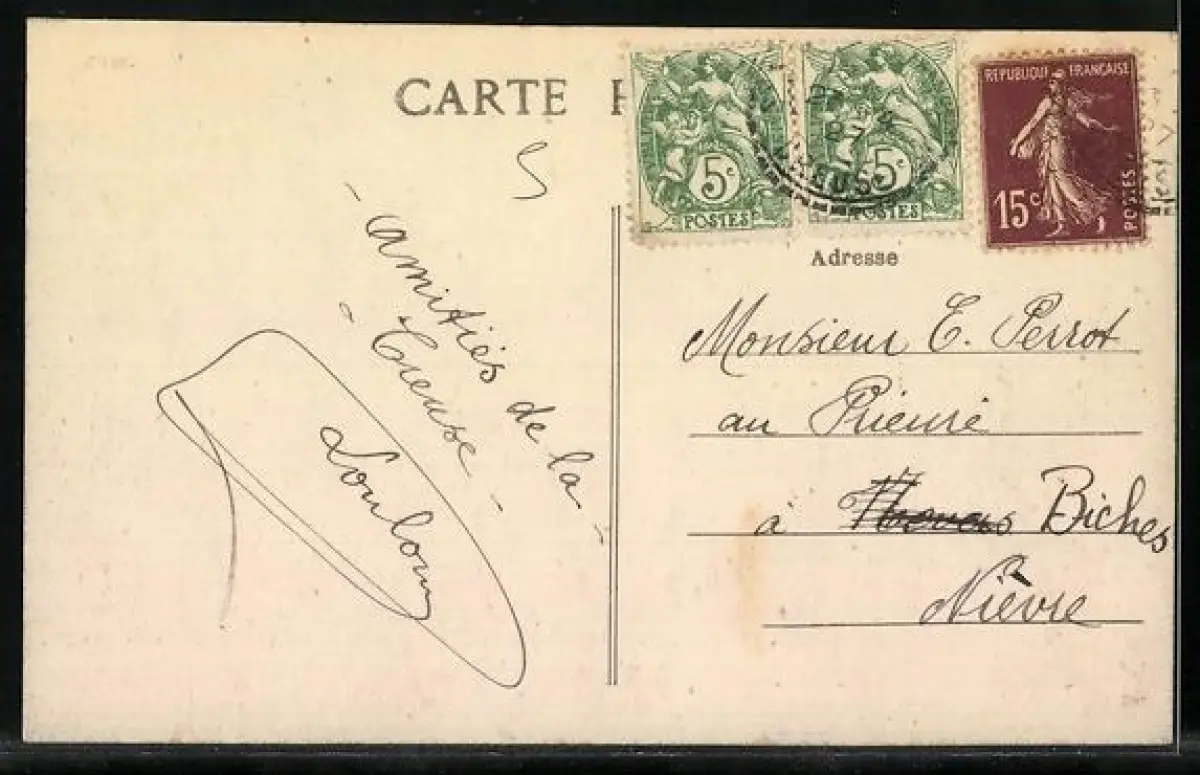 CARTE P
5c
POSTES
5c
POSTES
REPUBLIQUE FRANÇAISE
15c
POSTES
CREUSE
Adresse
- amitiés de la -
- Creuse -
Loulou
Monsieur E. Perrot
au Prieuré
à Biches
Nièvre